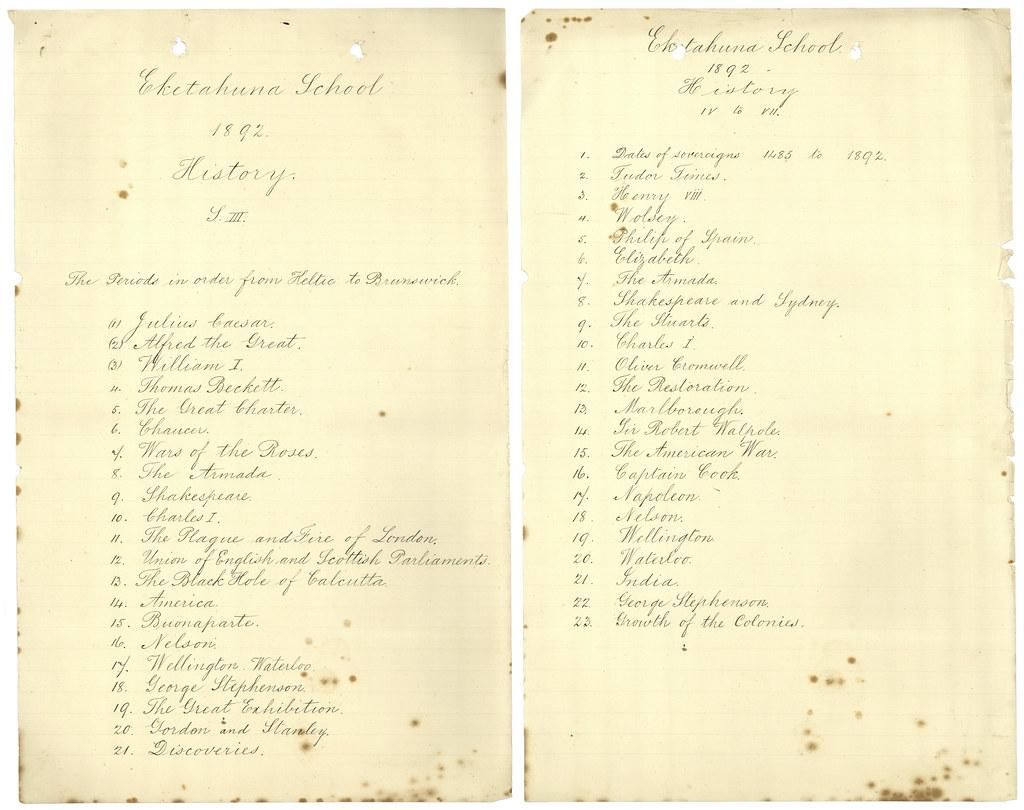 Eketahuna School
1892.
History.
S. III.
The Periods in order from Keltic to Brunswick.
(1) Julius Caesar.
(2) Alfred the Great.
(3) William I.
4. Thomas Beckett.
5. The Great Charter.
6. Chaucer.
7. Wars of the Roses.
8. The Armada.
9. Shakespeare.
10. Charles I.
11. The Plague and Fire of London.
12. Union of English and Scottish Parliaments.
13. The Black Hole of Calcutta.
14. America.
15. Buonaparte.
16. Nelson.
17. Wellington. Waterloo.
18. George Stephenson.
19. The Great Exhibition.
20. Gordon and Stanley.
21. Discoveries.
Eketahuna School
1892 -
History
IV to VII.
1. Dates of sovereigns 1485 to 1892.
2. Tudor Times.
3. Henry VIII.
4. Wolsey.
5. Philip of Spain.
6. Elizabeth.
7. The Armada.
8. Shakespeare and Sydney.
9. The Stuarts.
10. Charles I.
11. Oliver Cromwell.
12. The Restoration.
13. Marlborough.
14. Sir Robert Walpole.
15. The American War.
16. Captain Cook.
17. Napoleon.
18. Nelson.
19. Wellington
20. Waterloo.
21. India.
22. George Stephenson.
23. Growth of the Colonies.